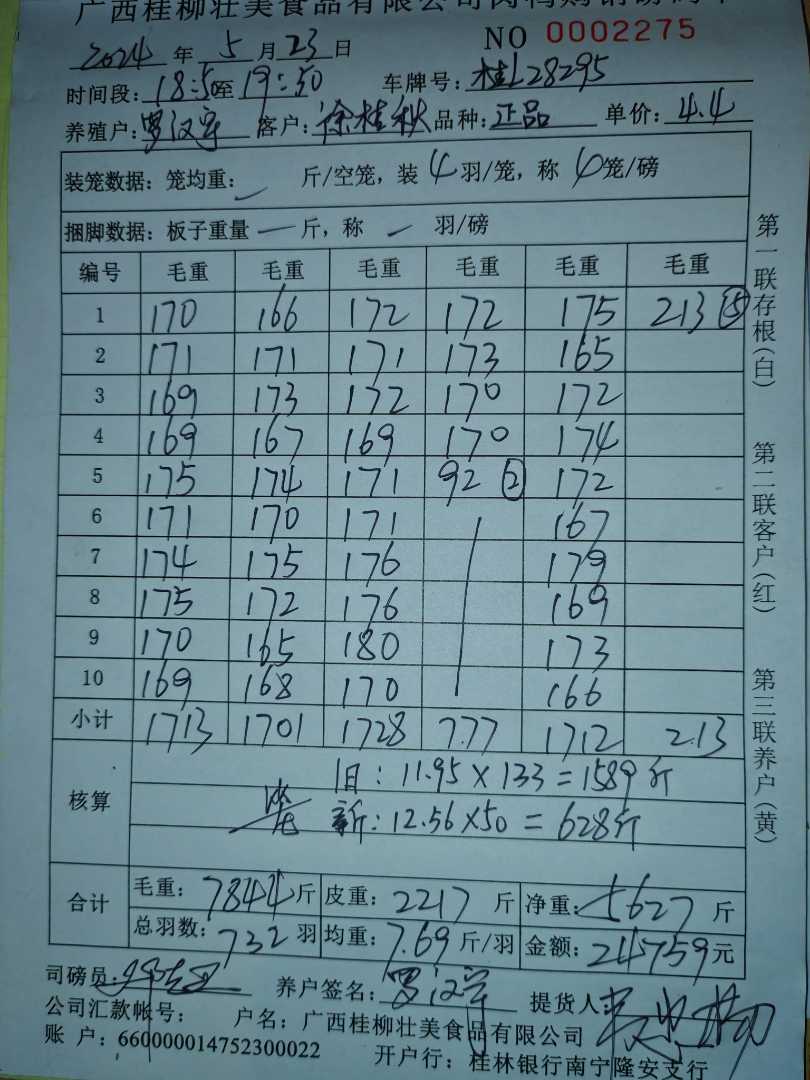 广西桂柳壮美食品有限公司肉鸭购销磅码单
NO 0002275
2024 年 5 月 23 日
时间段: 18:50 至 19:50 车牌号: 桂L28295
养殖户: 罗汉宇 客户: 徐桂秋 品种: 正品 单价: 4.4
装笼数据: 笼均重: 斤/空笼, 装 4 羽/笼, 称 6 笼/磅
捆脚数据: 板子重量 — 斤, 称 羽/磅
编号 毛重 毛重 毛重 毛重 毛重 毛重
1 170 166 172 172 175 213 ⑤
2 171 171 171 173 165
3 169 173 172 170 172
4 169 167 169 170 174
5 175 174 171 92 ② 172
6 171 170 171 167
7 174 175 176 179
8 175 172 176 169
9 170 165 180 173
10 169 168 170 166
小计 1713 1701 1728 777 1712 213
核算
旧: 11.95 × 133 = 1589 斤
笼 新: 12.56 × 50 = 628 斤
合计 毛重: 7844 斤 皮重: 2217 斤 净重: 5627 斤
总羽数: 732 羽 均重: 7.69 斤/羽 金额: 24759 元
司磅员: 养户签名: 罗汉宇 提货人:
公司汇款帐号: 户名: 广西桂柳壮美食品有限公司
账 户: 660000014752300022 开户行: 桂林银行南宁隆安支行
第一联存根(白) 第二联客户(红) 第三联养户(黄)